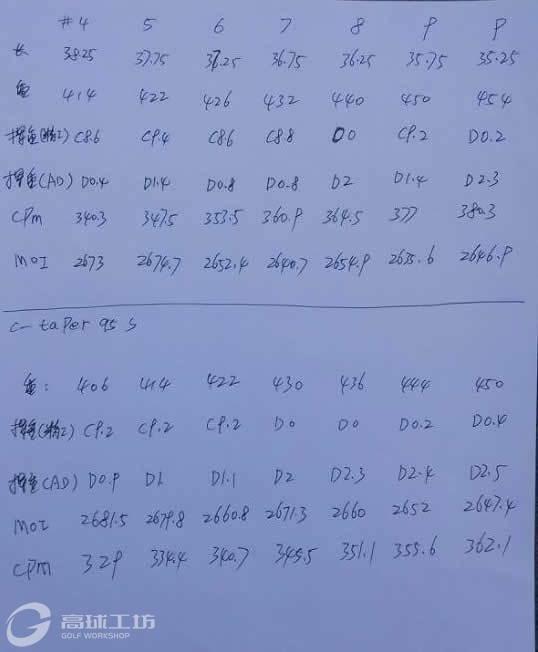 #4 5 6 7 8 9 P
长 38.25 37.75 37.25 36.75 36.25 35.75 35.25
重 414 422 426 432 440 450 454
挥重 C8.6 C9.4 C8.6 C8.8 D0 C9.2 D0.2
挥重(AD) D0.4 D1.4 D0.8 D0.8 D2 D1.4 D2.3
CPm 340.3 347.5 353.5 360.9 364.5 377 380.3
MOI 2673 2674.7 2652.4 2640.7 2654.9 2635.6 2646.9
C-taper 95 S
重: 406 414 422 430 436 444 450
挥重 C9.2 C9.2 C9.2 D0 D0 D0.2 D0.4
挥重(AD) D0.9 D1 D1.1 D2 D2.3 D2.4 D2.5
MOI 2681.5 2679.8 2660.8 2671.3 2660 2652 2647.4
CPM 329 334.4 340.7 345.5 351.1 355.6 362.1
高球工坊
GOLF WORKSHOP